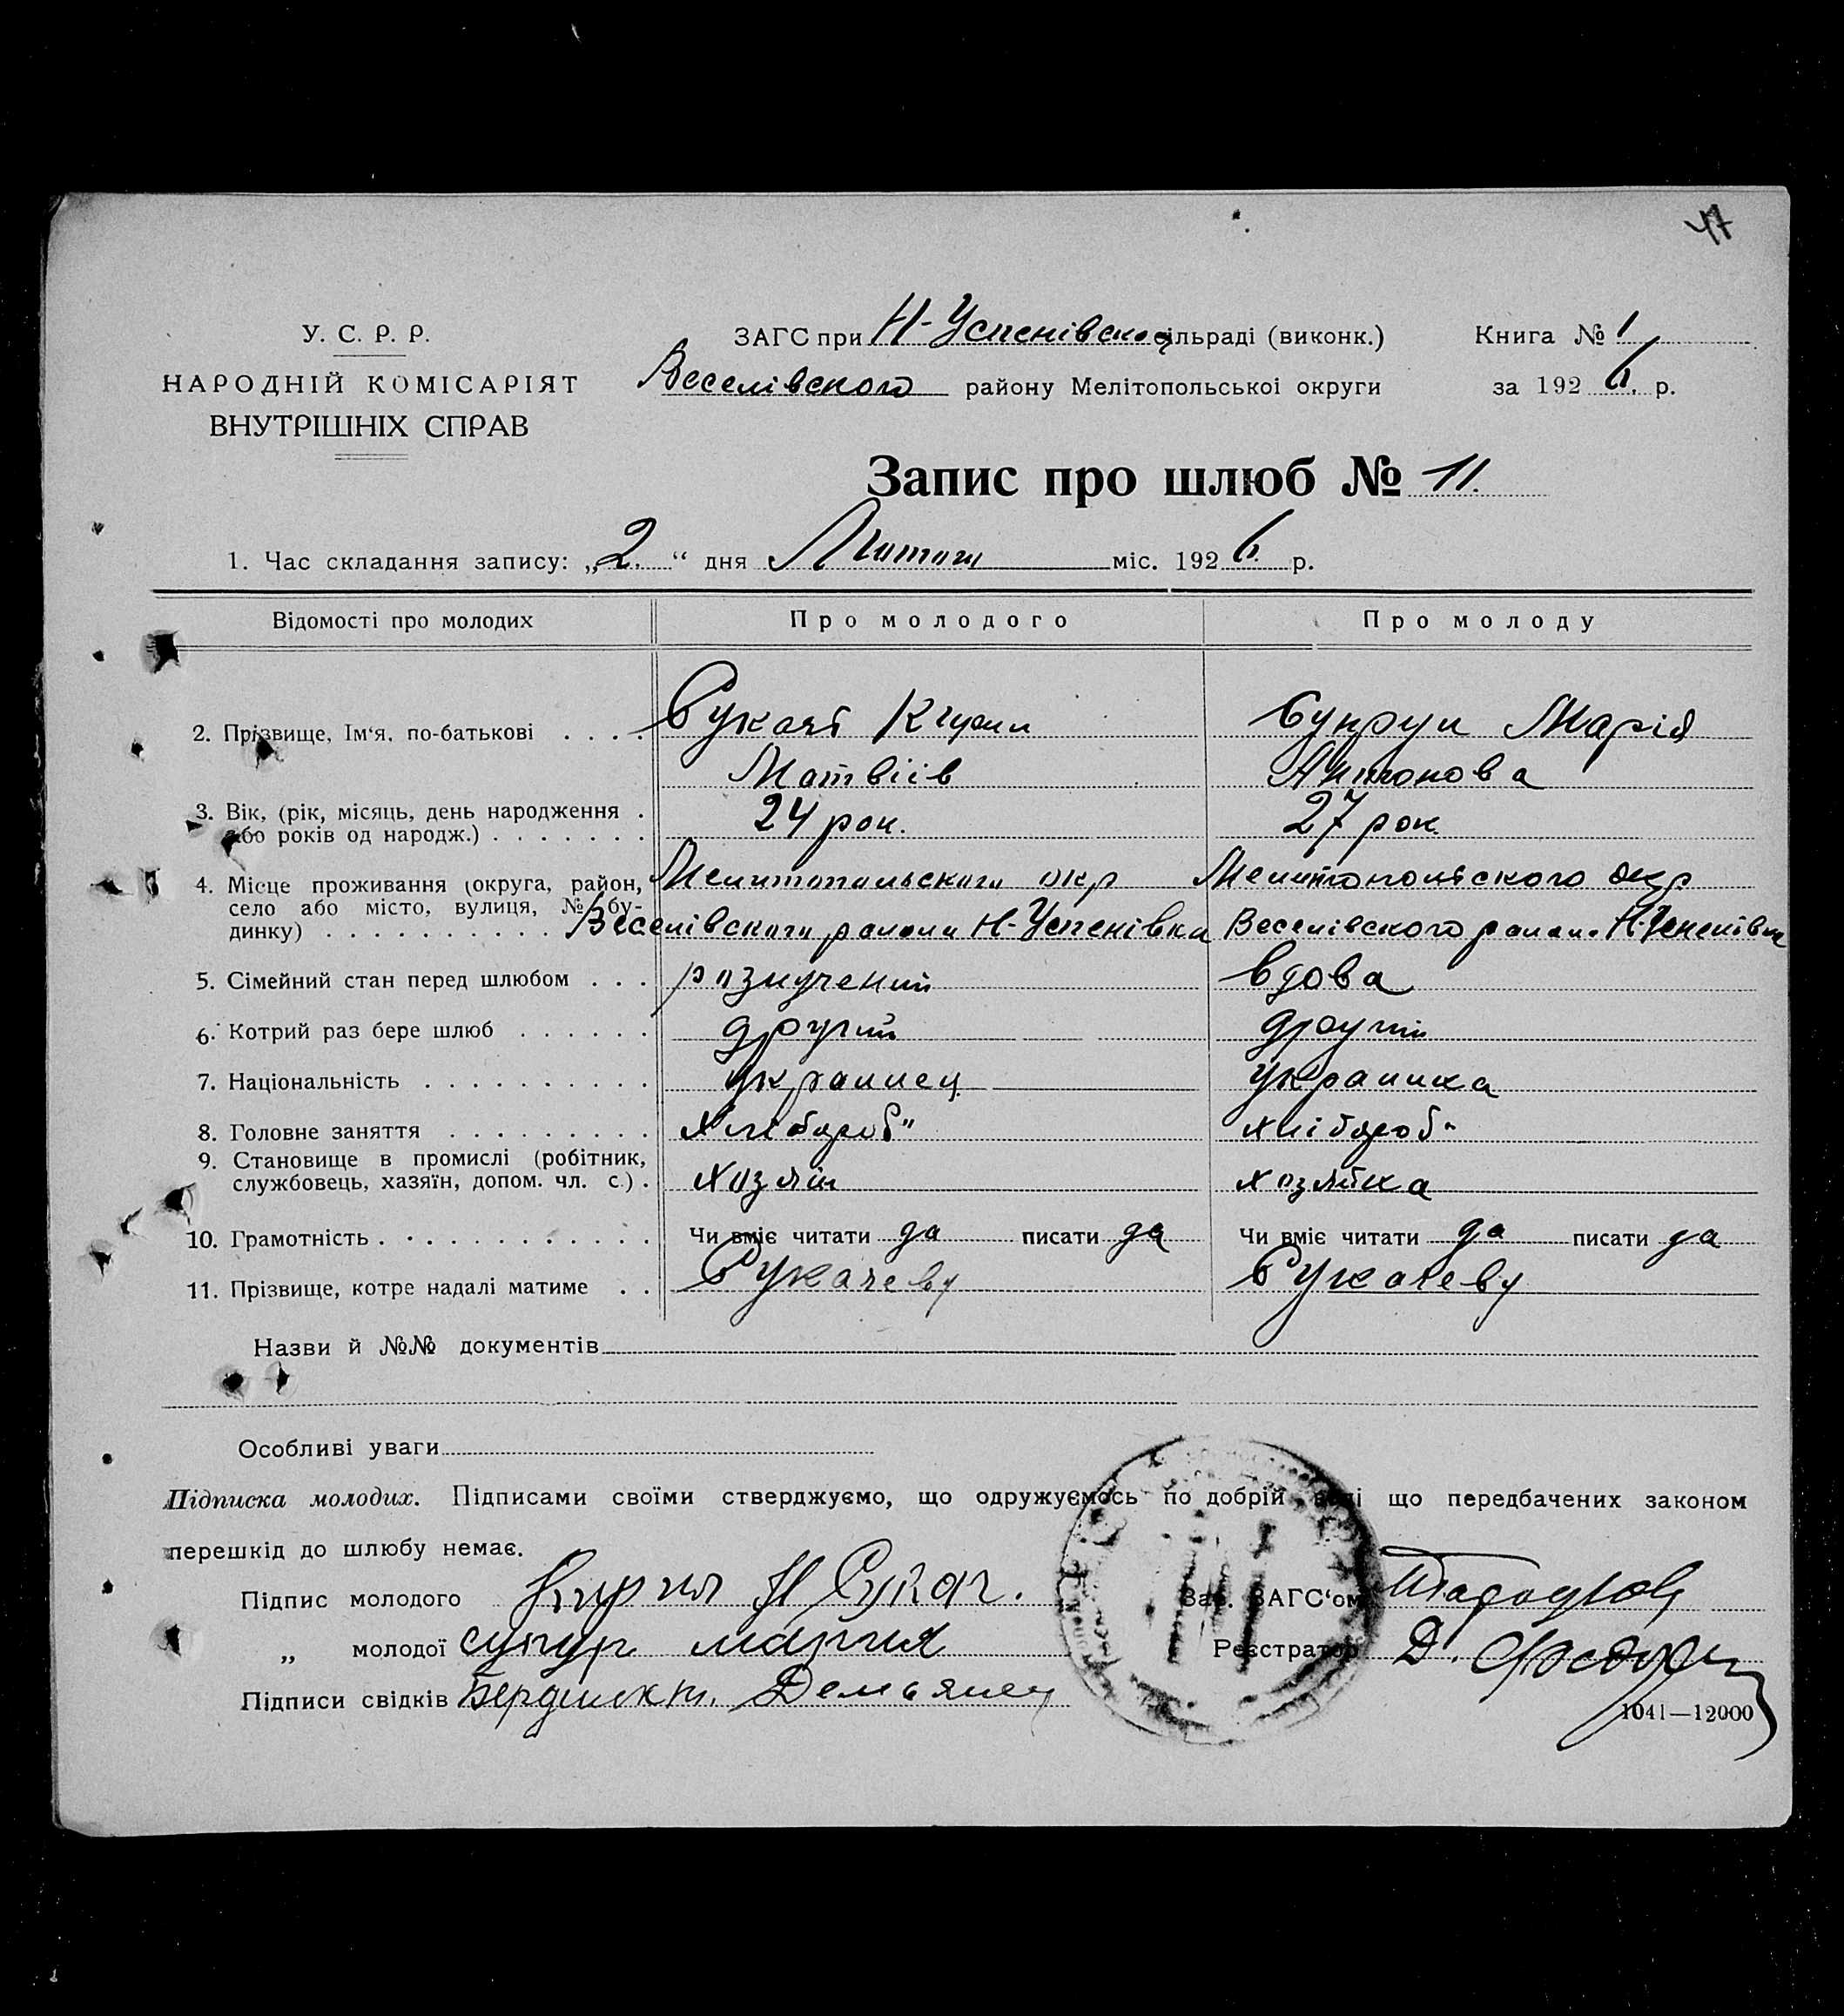 47
У. С. Р. Р.
НАРОДНІЙ КОМІСАРІЯТ
ВНУТРІШНІХ СПРАВ
ЗАГС при Н-Успенівскосільраді (виконк.)
Веселівского району Мелітопольської округи
Книга № 1
за 1926. р.
Запис про шлюб № 11.
1. Час складання запису: „2.“ дня Лютого міс. 1926 р.
Відомості про молодих Про молодого Про молоду
2. Прізвище, Ім‘я, по-батькові . . . . Сукач Кирил Супрун Марія
Матвіів Антонова
3. Вік, (рік, місяць, день народження . 24 рок. 27 рок.
або років од народж.) . . . . . . .
4. Місце проживання (округа, район, Мелитопольского окр Мелитопольского окр
село або місто, вулиця, № бу-
динку) . . . . . . . . . . Веселівского району Н-Успенівка Веселівского району Н-Успенівка
5. Сімейний стан перед шлюбом . . . розлучений вдова
6. Котрий раз бере шлюб . . . . . . другий другий
7. Національність . . . . . . . . . . украинец украинка
8. Головне заняття . . . . . . . . . хлібороб" хлібороб"
9. Становище в промислі (робітник,
службовець, хазяїн, допом. чл. с.) . хозяін хозяйка
10. Грамотність . . . . . . . . . . . . Чи вміє читати да писати да Чи вміє читати да писати да
11. Прізвище, котре надалі матиме . . Сукачеву Сукачеву
Назви й №№ документів
Особливі уваги
Підписка молодих. Підписами своїми стверджуємо, що одружуємось по добрій волі що передбачених законом
перешкід до шлюбу немає.
Підпис молодого Кирил Сукач.
Зав. ЗАГС‘ом
„ молодої супрун мария
Реєстратор Д.
Підписи свідків Демьянец
1041—12000